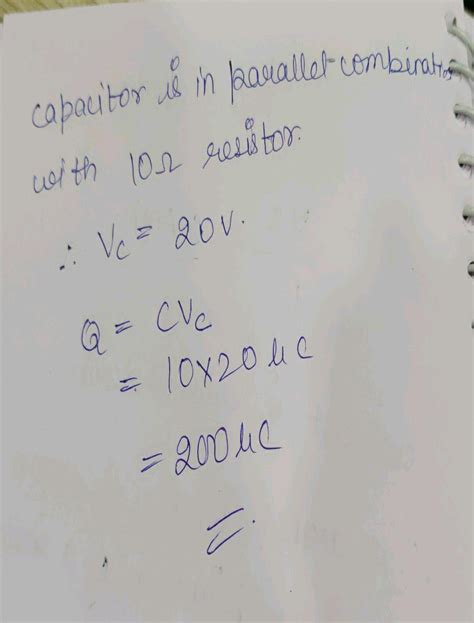 capacitor is in parallel combination
with 10Ω resistor.
∴ Vc = 20V.
Q = CVc
= 10×20 μC
= 200 μC